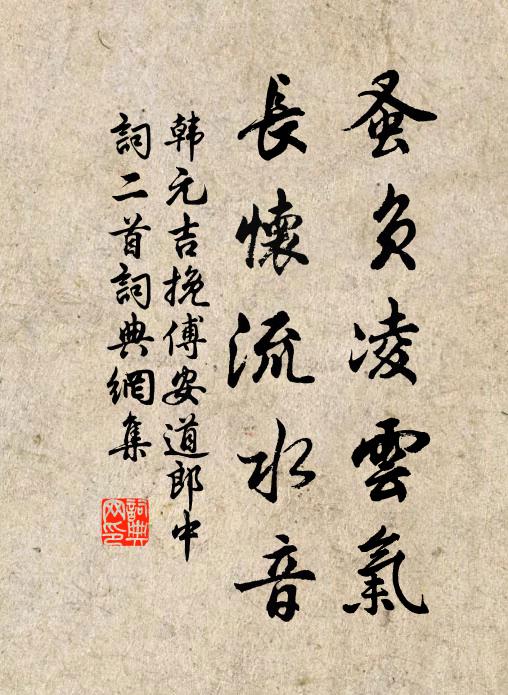 蚤負凌雲氣
長懷流水音
韩元吉挽傅安道郎中
詞二首詞典網集
詞典網印